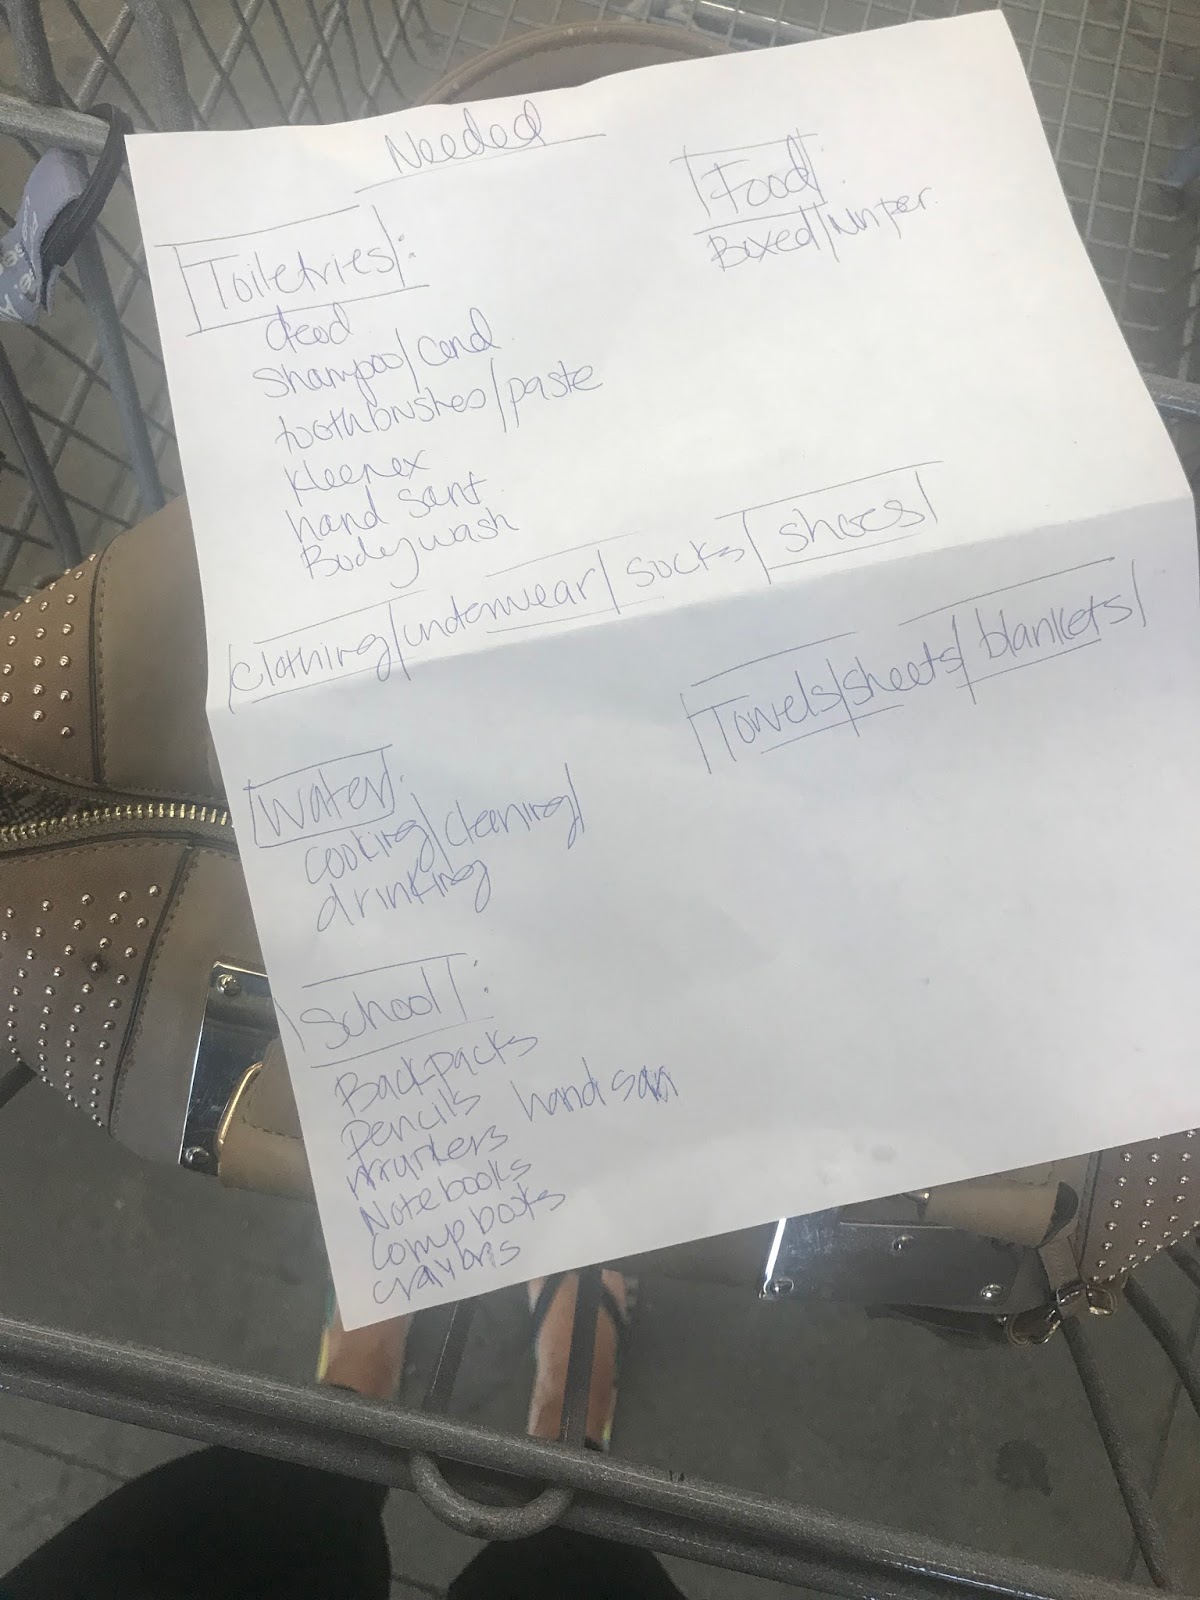 Needed
Toiletries:
deod
Shampoo/cond
toothbrushes/paste
Kleenex
hand sant
Bodywash
Food:
Boxed/nonper.
clothing/underwear/socks/shoes
Towels/sheets/blankets
Water:
cooking/cleaning/
drinking
School:
Backpacks
pencils hand san
markers
Notebooks
comp books
crayons